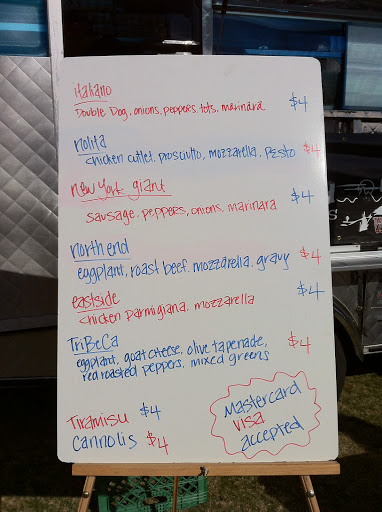 italiano
Double Dog, onions, peppers, tots, marinara $4
nolita
chicken cutlet, prosciutto, mozzarella, Pesto $4
new york giant
sausage, peppers, onions, marinara $4
north end
eggplant, roast beef, mozzarella, gravy $4
eastside $4
chicken parmigiana, mozzarella
TriBeCa
eggplant, goat cheese, olive tapenade, $4
red roasted peppers, mixed greens
Tiramisu $4
Cannolis $4
Mastercard
visa
accepted